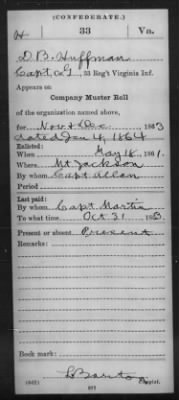 (CONFEDERATE.)
H 33 Va.
D. B. Huffman
Capt, Co. I, 33 Reg't Virginia Inf.
Appears on
Company Muster Roll
of the organization named above,
for Nov & Dec, 1863
dated Jan 4, 1864
Enlisted:
When May 18, 1861.
Where Mt Jackson
By whom Capt Allen
Period
Last paid:
By whom Capt Martin
To what time Oct 31, 1863.
Present or absent Present
Remarks:
Book mark:
(642) Copyist.